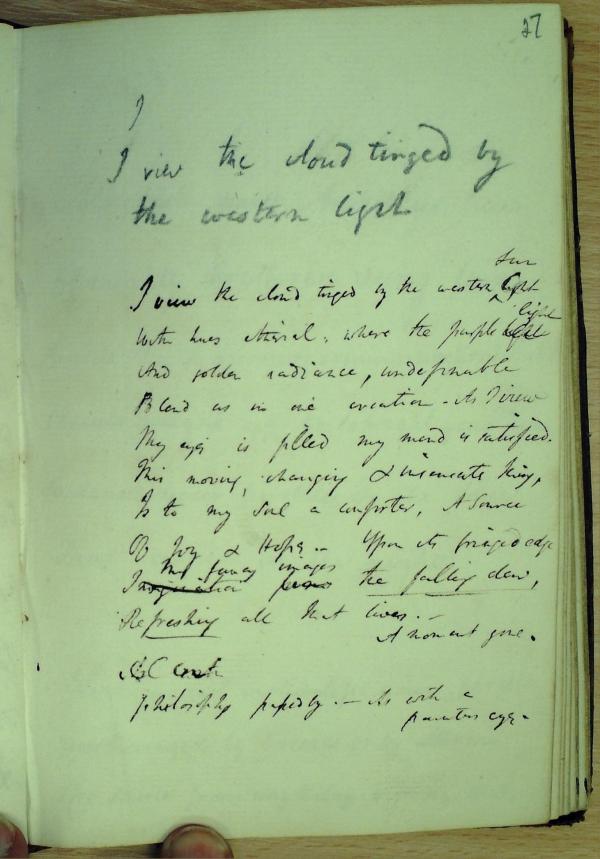 27
I
I view the cloud tinged by
the western light
Sun
I view the cloud tinged by the western light
light
With hues etherial, where the purple
And golden radiance, undefinable
Blend as in one creation - As I view
My eye is filled my mind is satisfied.
This moving, changing & insensate thing,
Is to my Soul a comforter, A Source
Of Joy & Hope - Upon its fringed edge
my fancy images
Imagination the falling dew,
Refreshing all that lives. -
A moment gone.
Philosophy - As with a
eye -